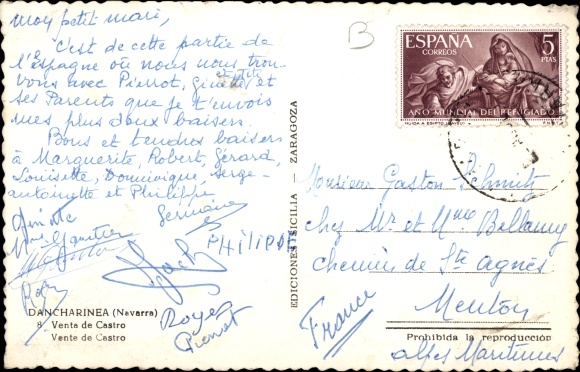 mon petit mari,
C'est de cette partie de
l'Espagne où nous nous trou-
vons avec Pierrot, Ginette
et
ses Parents que je t'envois
mes plus doux baisers.
Bons et tendres baisers
à Marguerite, Robert, Gérard,
Louisette, Dominique, Serge-
antoinette et Philippe
Germaine
PHiLiPPE
Roger
Pierrot
DANCHARINEA (Navarra)
8. Venta de Castro
Vente de Castro
EDICIONES SICILIA - ZARAGOZA
B
ESPAÑA
CORREOS
5
PTAS
AÑO MUNDIAL DEL REFUGIADO
HUIDA A EGIPTO (BAYEU)
Monsieur Gaston Schmitz
chez Mr et Mme Bellamy
chemin de Ste agnès
Menton
France
Prohibida la reproducción
alpes Maritimes